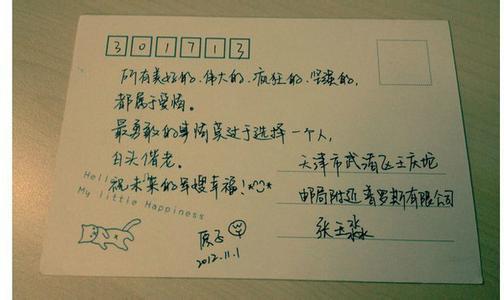 301713
所有美好的、伟大的、疯狂的、坚强的,
都属于爱情。
最勇敢的事情莫过于选择一个人,
白头偕老。
祝未来的军嫂幸福!
Hello
My little Happiness
天津市武清区王庆坨
邮局附近普罗斯有限公司
张玉淼
2012.11.1